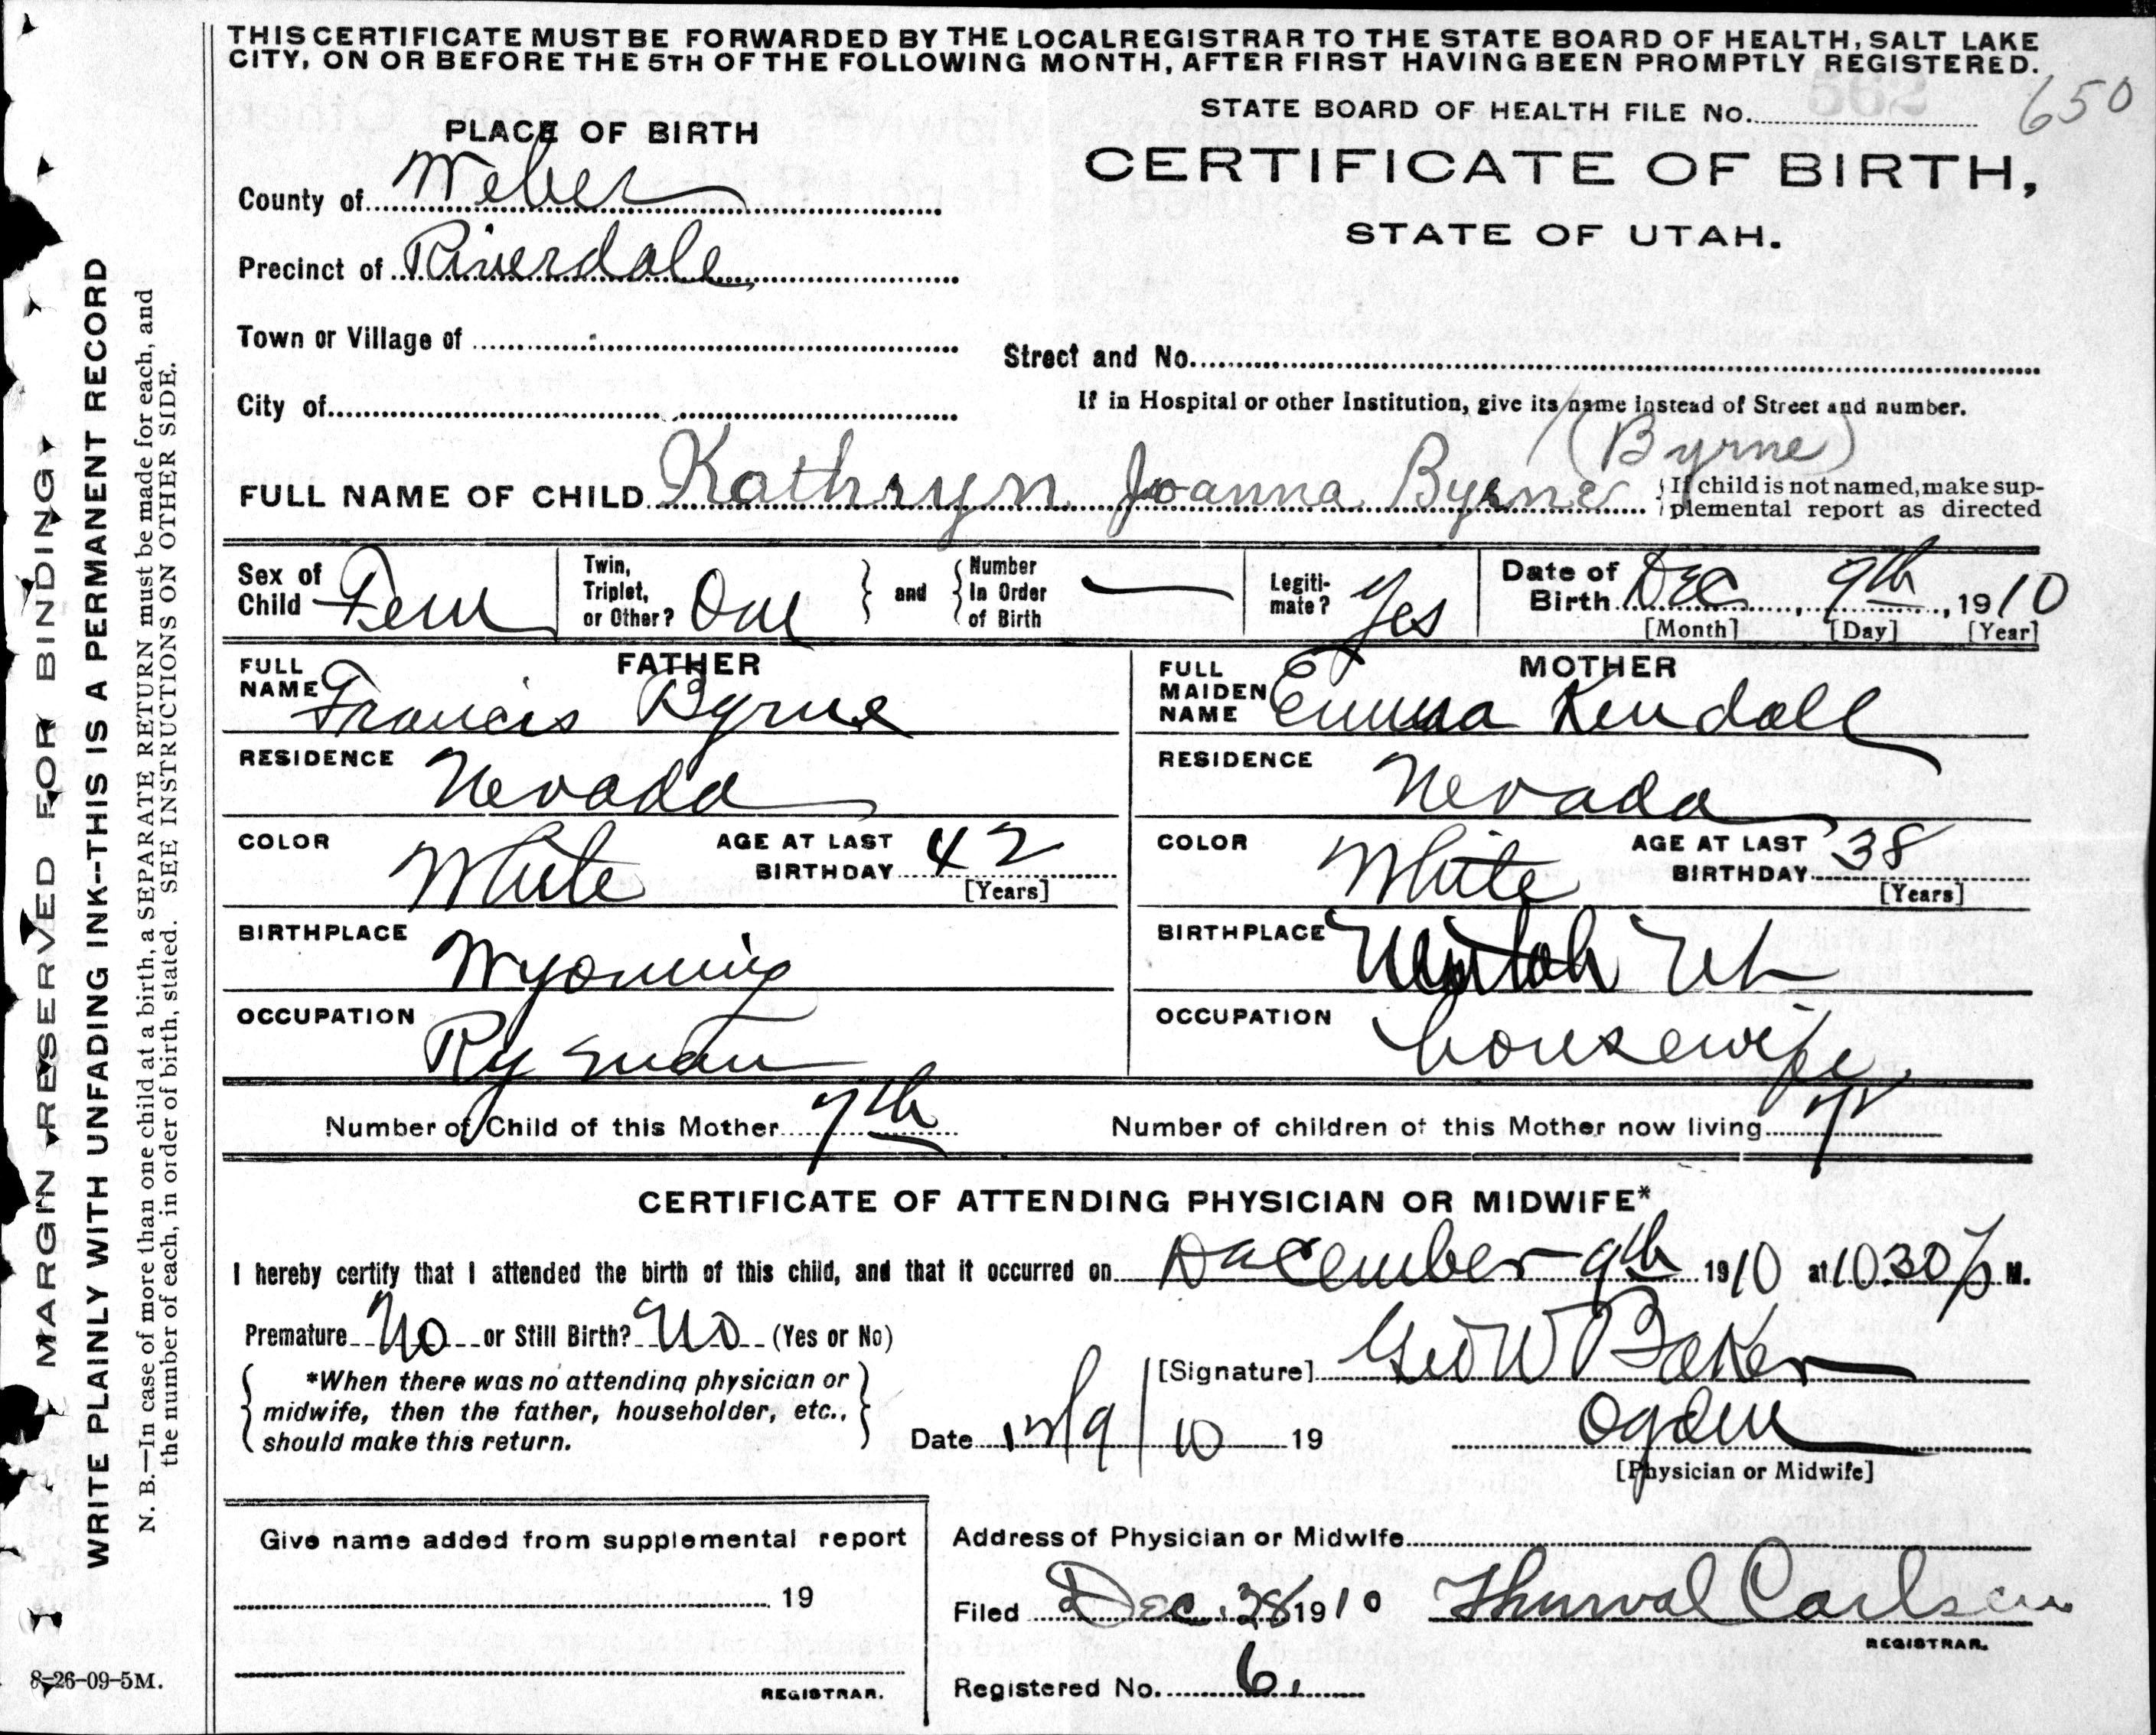 THIS CERTIFICATE MUST BE FORWARDED BY THE LOCAL REGISTRAR TO THE STATE BOARD OF HEALTH, SALT LAKE
CITY, ON OR BEFORE THE 5TH OF THE FOLLOWING MONTH, AFTER FIRST HAVING BEEN PROMPTLY REGISTERED.
STATE BOARD OF HEALTH FILE No. 562 650
PLACE OF BIRTH
CERTIFICATE OF BIRTH,
STATE OF UTAH.
County of Weber
Precinct of Riverdale
Town or Village of
Street and No.
City of
If in Hospital or other Institution, give its name instead of Street and number.
(Byrne)
FULL NAME OF CHILD Kathryn Joanna Byrne
If child is not named, make sup-
plemental report as directed
Sex of Child Fem
Twin, Triplet, or Other? One
and
Number In Order of Birth —
Legiti-mate? Yes
Date of Birth Dec 9th, 1910
[Month] [Day] [Year]
FATHER
FULL NAME Francis Byrne
RESIDENCE Nevada
COLOR White
AGE AT LAST BIRTHDAY 42
[Years]
BIRTHPLACE Wyoming
OCCUPATION Ry man
MOTHER
FULL MAIDEN NAME Emma Kendall
RESIDENCE Nevada
COLOR White
AGE AT LAST BIRTHDAY 38
[Years]
BIRTHPLACE Uintah Ut
OCCUPATION housewife
Number of Child of this Mother 7th
Number of children of this Mother now living 7
CERTIFICATE OF ATTENDING PHYSICIAN OR MIDWIFE*
I hereby certify that I attended the birth of this child, and that it occurred on December 9th 1910 at 10 30 P M.
Premature No or Still Birth? No (Yes or No)
*When there was no attending physician or
midwife, then the father, householder, etc.,
should make this return.
[Signature] Geo W Baker
Date 12/9/10 19
Ogden
[Physician or Midwife]
Give name added from supplemental report
19
REGISTRAR.
Address of Physician or Midwife
Filed Dec. 28 1910 Thurval Carlsen
REGISTRAR.
Registered No. 6.
MARGIN RESERVED FOR BINDING
WRITE PLAINLY WITH UNFADING INK--THIS IS A PERMANENT RECORD
N. B.—In case of more than one child at a birth, a SEPARATE RETURN must be made for each, and
the number of each, in order of birth, stated. SEE INSTRUCTIONS ON OTHER SIDE.
8-26-09-5M.